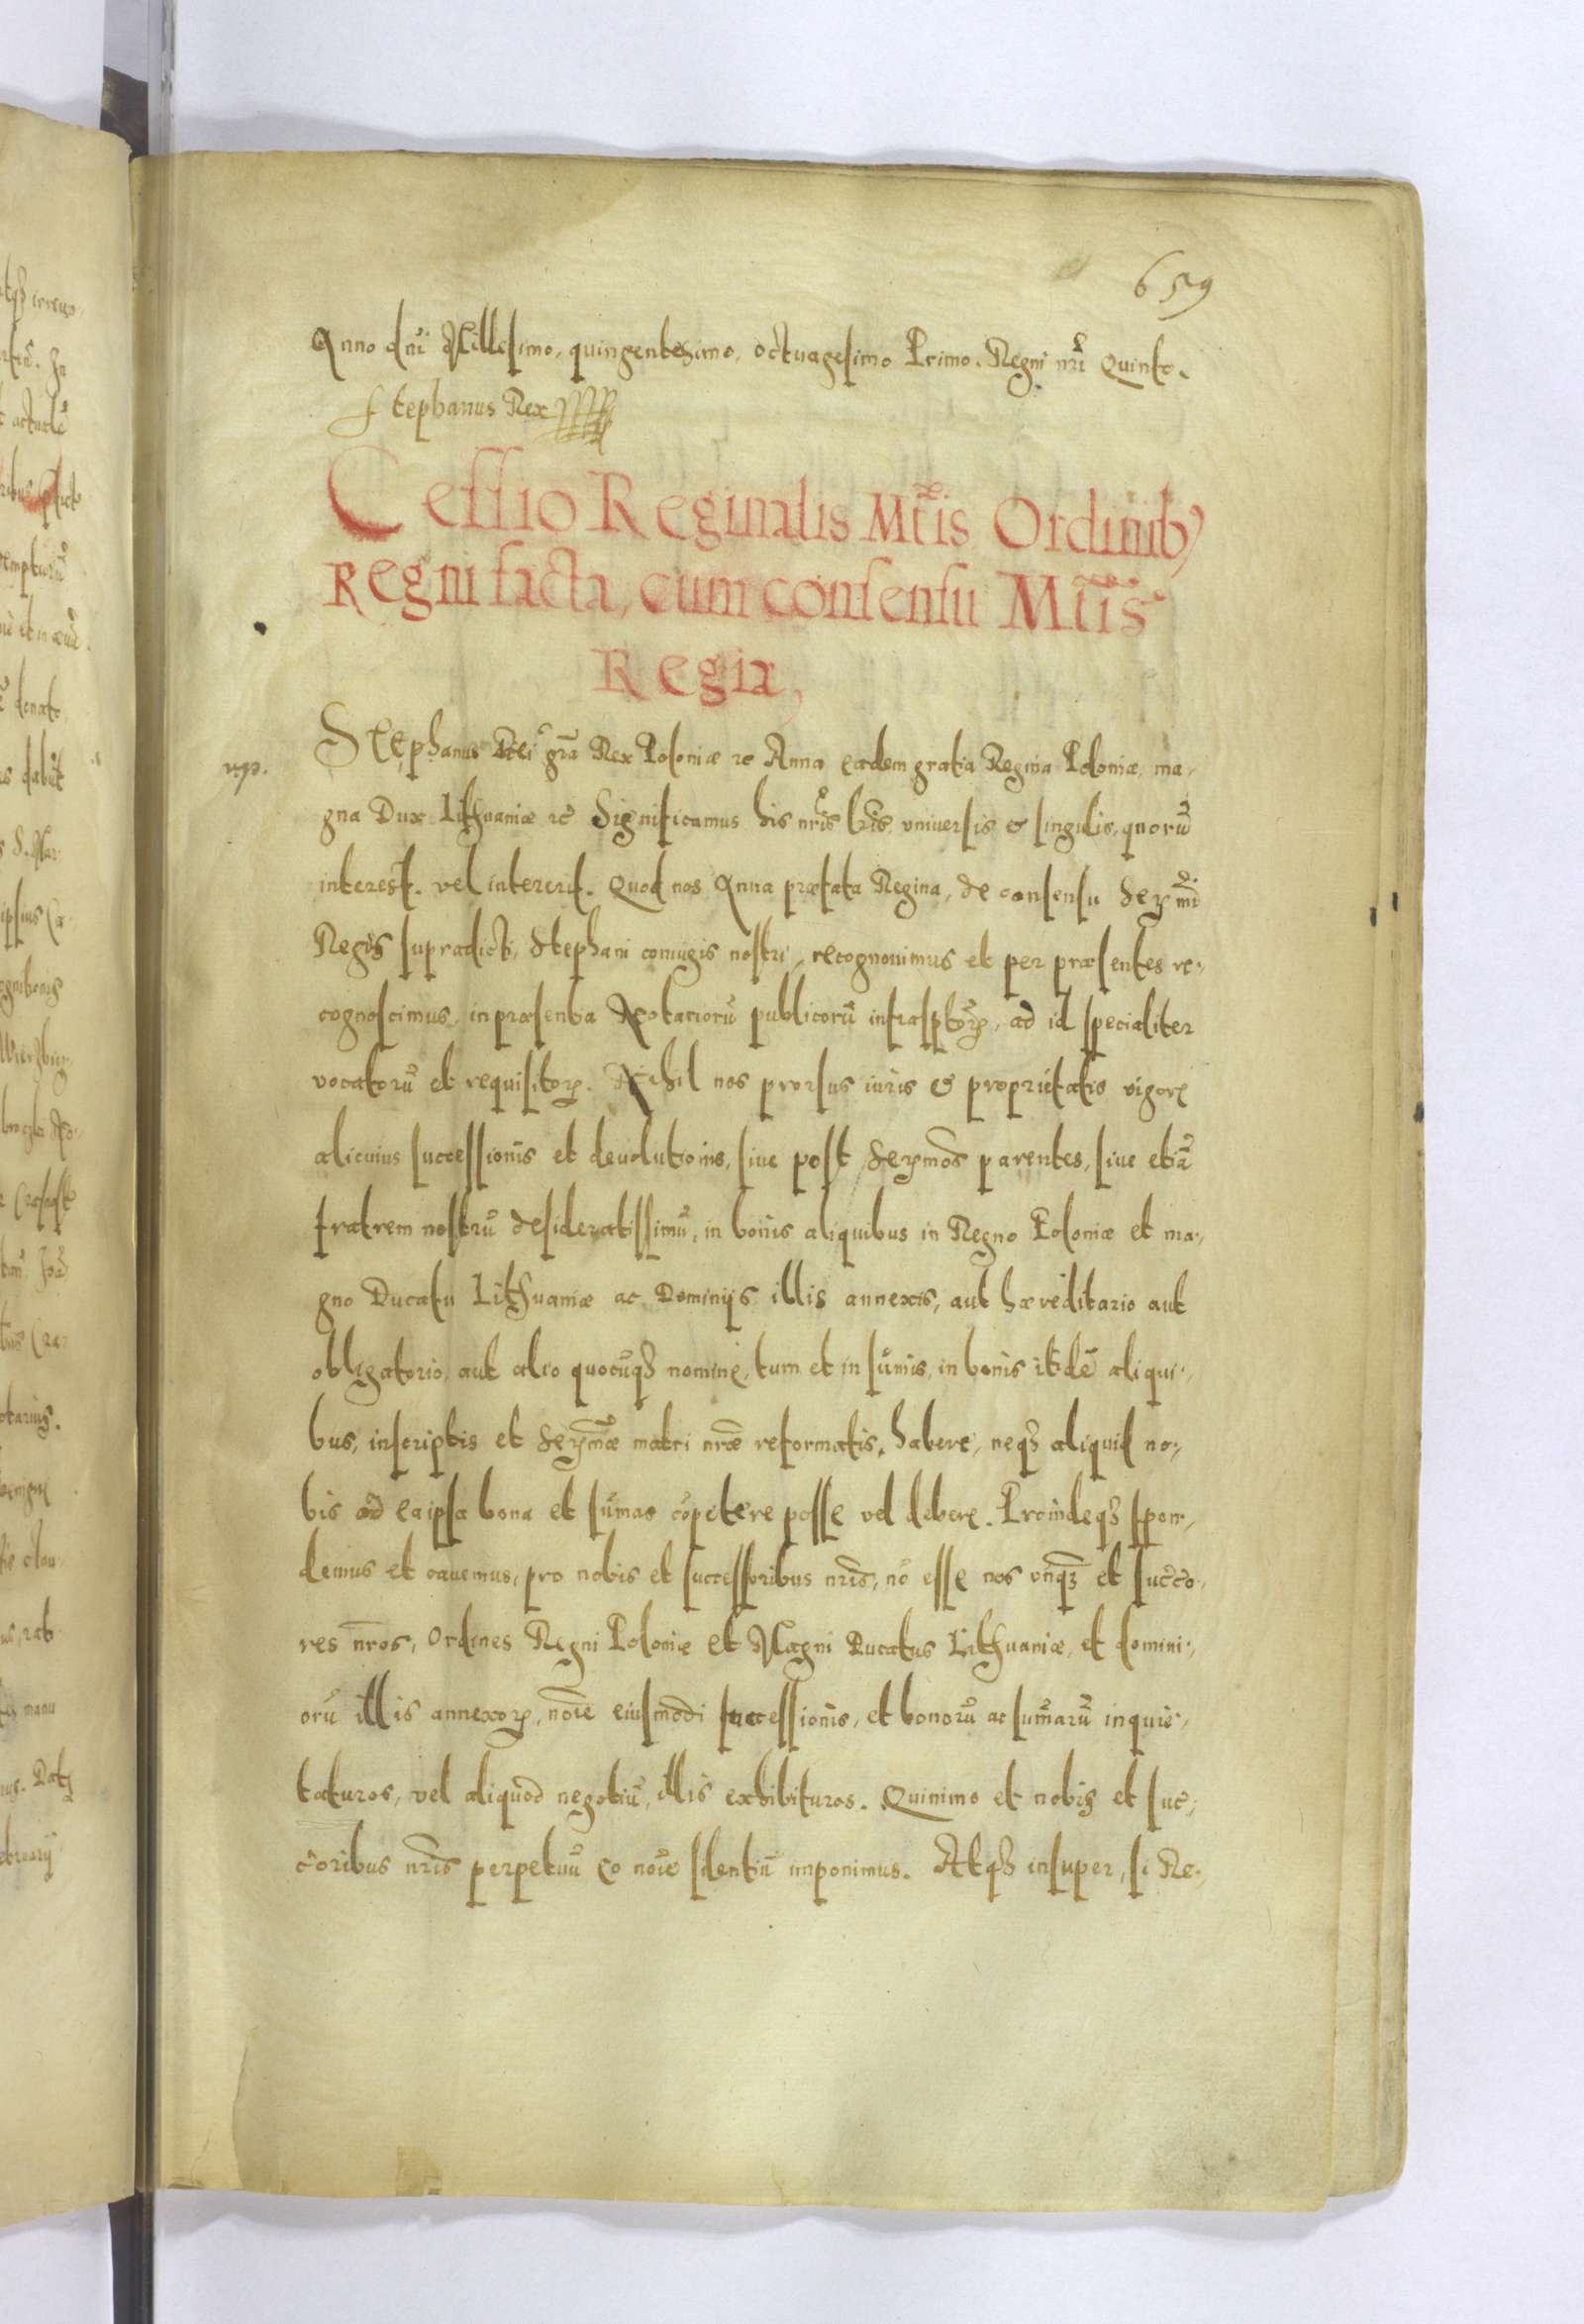 659
Anno dni Millesimo, quingentesimo, octuagesimo Primo. Regni nri Quinto.
Stephanus Rex
Cessio Reginalis Mtis Ordinib9
Regni facta, cum consensu Mtis
Regiæ,
Stephanus Dei gra Rex Poloniæ &c Anna eadem gratia Regina Poloniæ, ma-
gna Dux Lithuaniæ &c Significamus his nris lris vniuersis & singulis, quorũ
interest. vel intererit. Quod nos Anna præfata Regina, de consensu Serꝫmi
Regis supradicti, Stephani coniugis nostri, recognouimus et per præsentes re-
cognoscimus, in præsentia Notariorũ publicorũ infrasptorꝫ, ad id specialiter
vocatorũ et requisitorꝫ. Nihil nos prorsus iuris & proprietatis vigore
alicuius successionis et deuolutionis, siue post Serꝫmos parentes, siue etiã
fratrem nostrũ desideratissimũ, in bonis aliquibus in Regno Poloniæ et ma-
gno Ducatu Lithuaniæ ac Dominijs illis annexis, aut hæreditario aut
obligatorio, aut alio quocũqꝫ nomine, tum et in sũmis, in bonis itidẽ aliqui-
bus, inscriptis et Serꝫmæ matri nræ reformatis, habere, neqꝫ aliquid no-
bis ad ea ipsa bona et sũmas cõpetere posse vel debere. Proindeqꝫ spon-
demus et cauemus, pro nobis et successoribus nris, nõ esse nos vnqꝫ et succo-
res nros, Ordines Regni Poloniæ et Magni Ducatus Lithuaniæ, et domini-
orũ illis annexorꝫ, noie eiusmodi successionis, et bonorũ ac sum̃arũ inquie-
taturos, vel aliquod negotiũ, illis exhibituros. Quinimo et nobis et suc-
coribus nris perpetuũ eo noie silentiũ imponimus. Atqꝫ insuper, si Re-